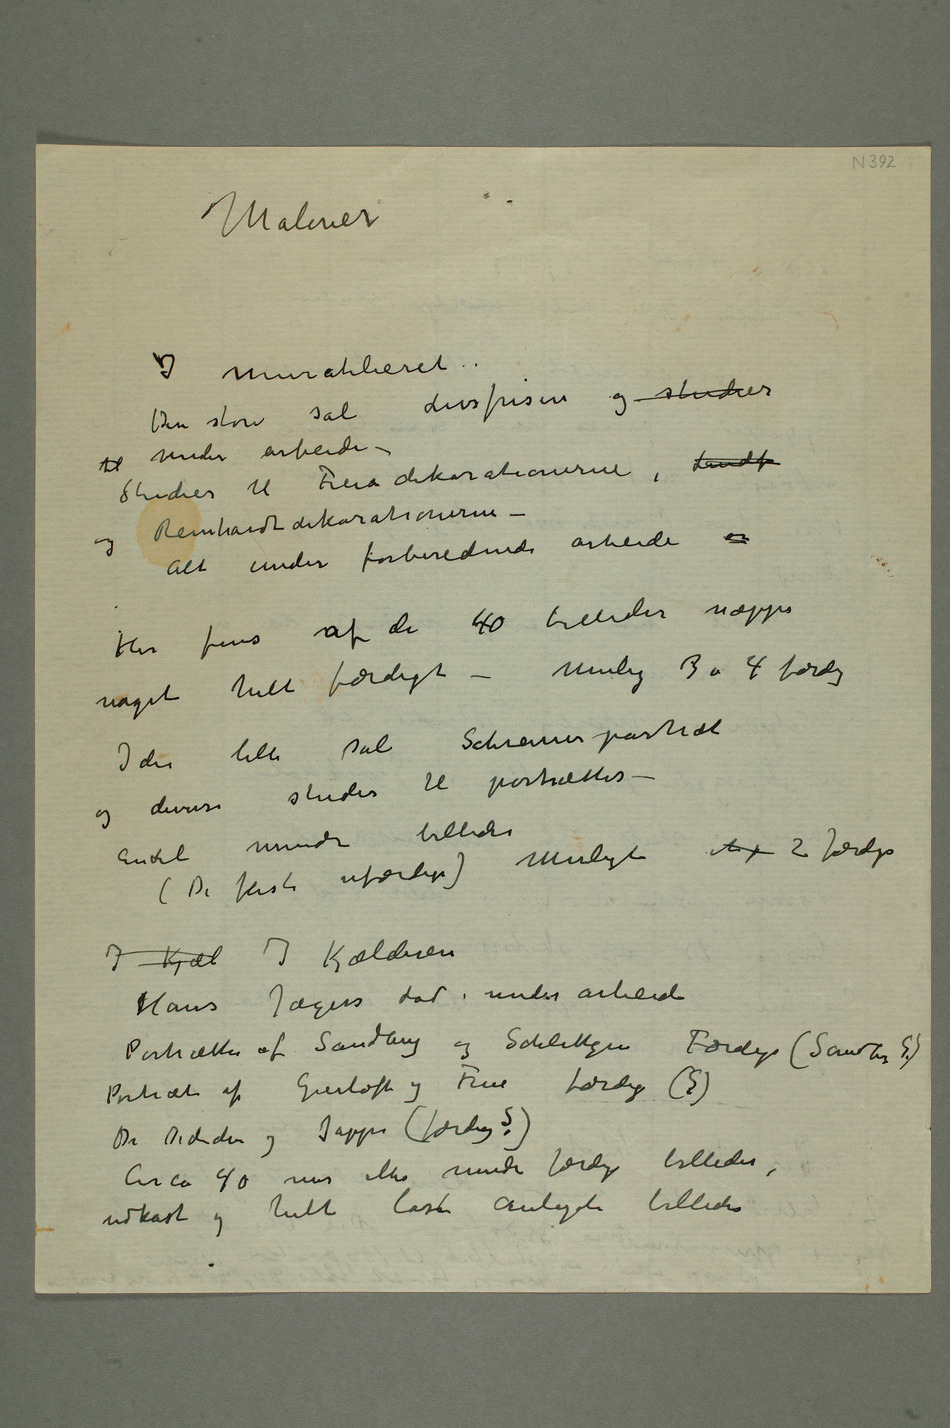 N392
Malerier
I muratelieret..
Den store sal Livsfrisen og studier
til under arbeide –
Studier til Freiadekorationerne, Lindt
og Reinhardtdekorationerne –
Alt under forberedende arbeide er
Her fins af de 40 billeder næppe
noget helt færdigt – Mulig 3 a 4 færdig
I den lille sal Schreinerportræt
og diverse studier til portrætter –
Endel mindre billeder
(De fleste ufærdige) Muligt 2 færdige
I Kjæl I Kjælderen
Hans Jægers død. under arbeide
Portrætter af Sandberg og Schlittgen Færdige (Sandberg ?)
Portræt af Gierløff og Frue færdige (?)
De Dedichen og Jappe (færdig ?)
Circa 40 mer eller mindre færdige billeder,
udkast og helt løst anlagte billeder